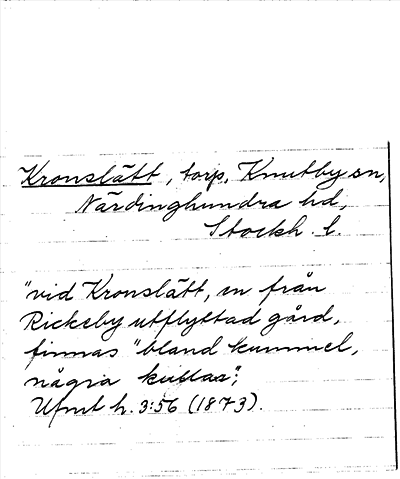 Kronslätt, torp, Knutby sn,
Närdinghundra hd,
Stockh. l.
"vid Kronslätt, en från
Rickeby utflyttad gård,
finnas "bland kummel,
några kullar";
Ufmt h. 3:56 (1873).